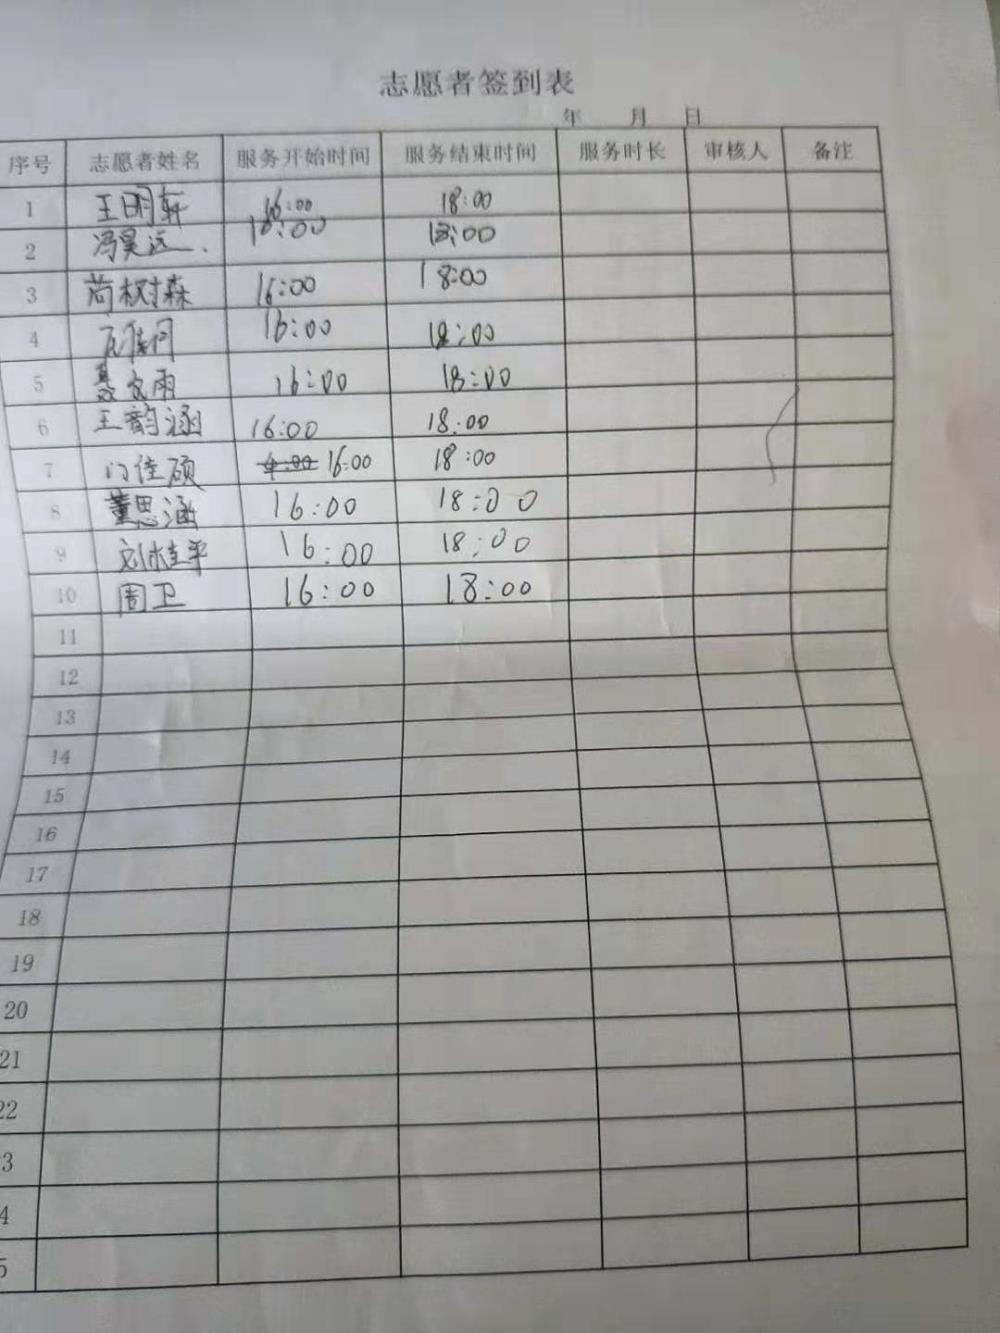 志愿者签到表
年 月 日
序号 志愿者姓名 服务开始时间 服务结束时间 服务时长 审核人 备注
1 王明轩 16:00 18:00
2 冯昊远 16:00 18:00
3 苘树森 16:00 18:00
4 16:00 18:00
5 聂文雨 16:00 18:00
6 王韵涵 16:00 18:00
7 门佳硕 16:00 18:00
8 董思涵 16:00 18:00
9 刘桂平 16:00 18:00
10 周卫 16:00 18:00
11
12
13
14
15
16
17
18
19
20
21
22
3
4
5